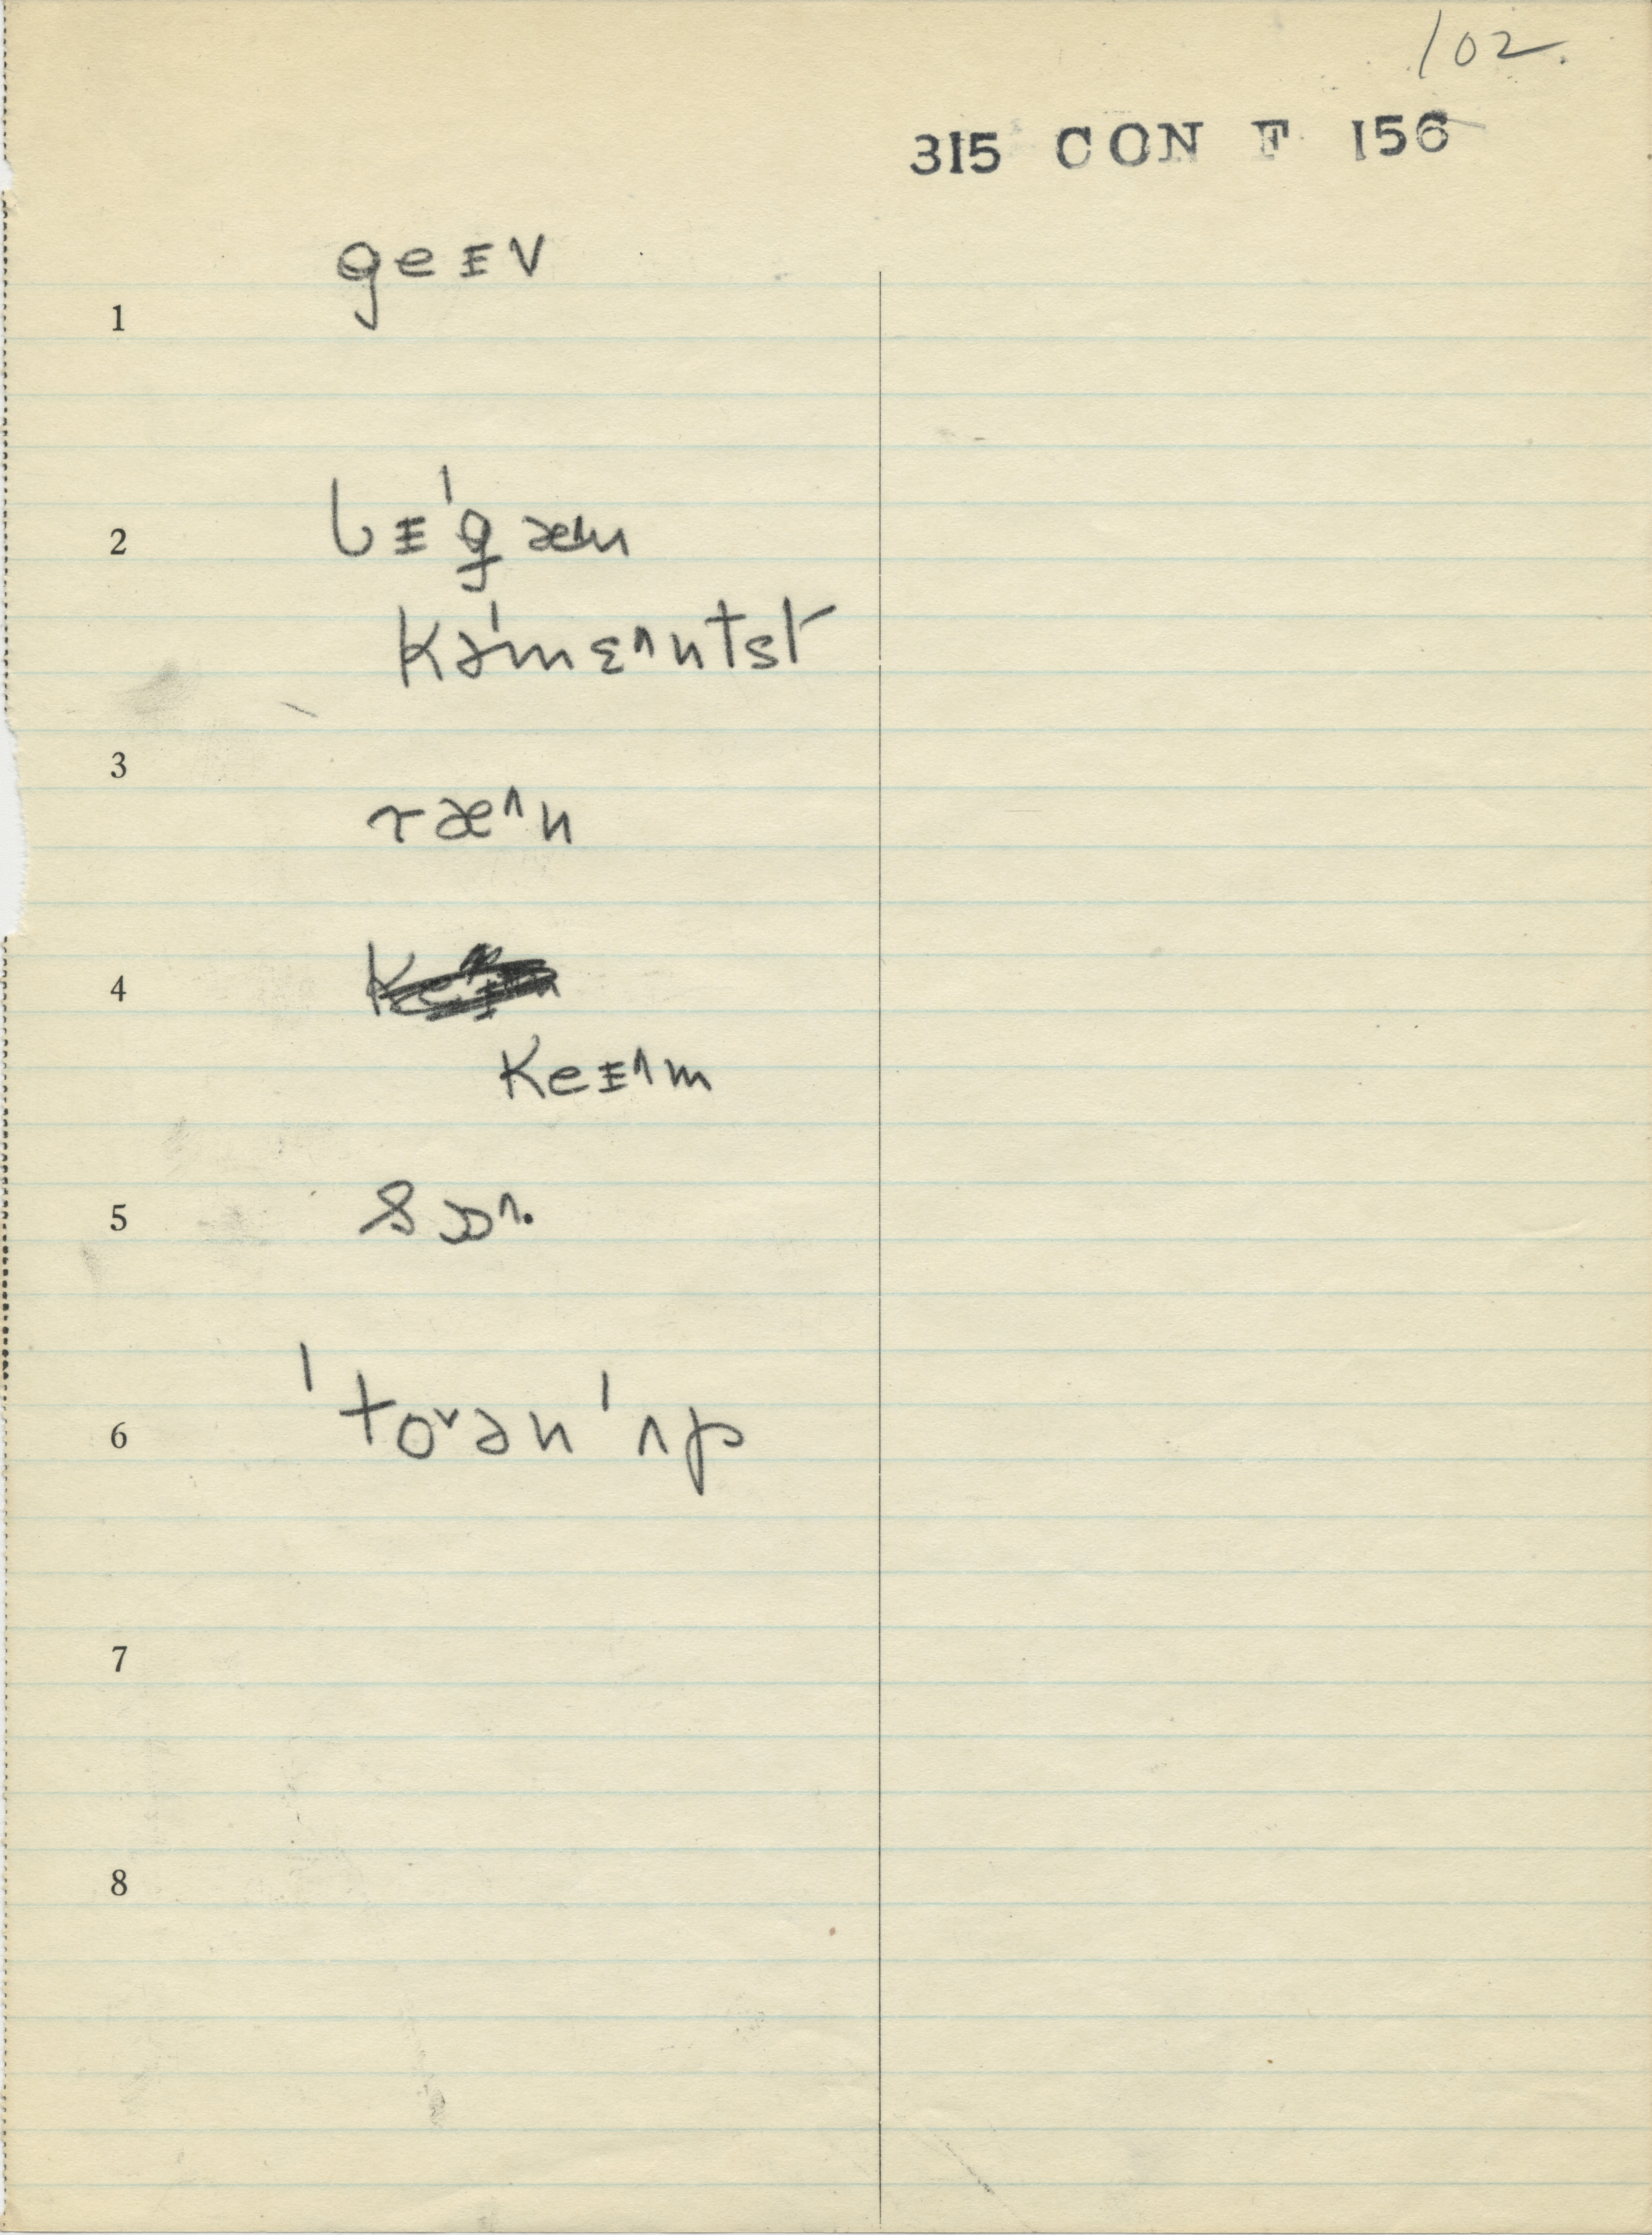 102.
315 CON F 156
1 geɪv
2 bɪˈgæn
kəˈmɛ^ntst
3 ræ^n
4
keɪ^m
5 sɔ^.
6 ˈto˅ən ˈʌp
7
8